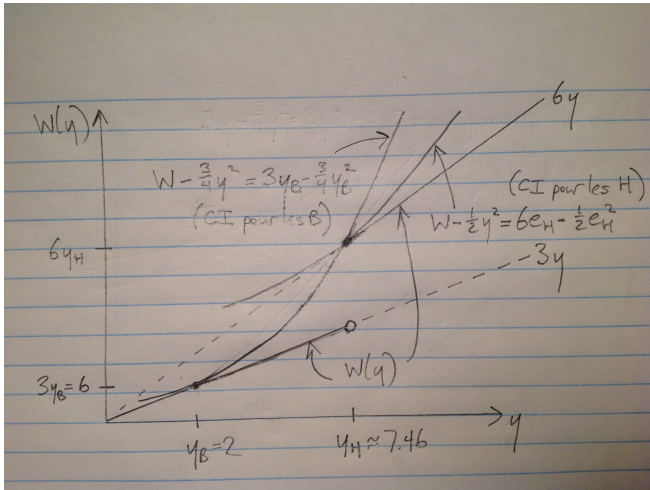 W(y)
6y
W - 3/4 y² = 3y_B - 3/4 y_B²
(CI pour les B)
(CI pour les H)
W - 1/2 y² = 6e_H - 1/2 e_H²
6y_H
3y
W(y)
3y_B = 6
y
y_B = 2
y_H ≈ 7.46